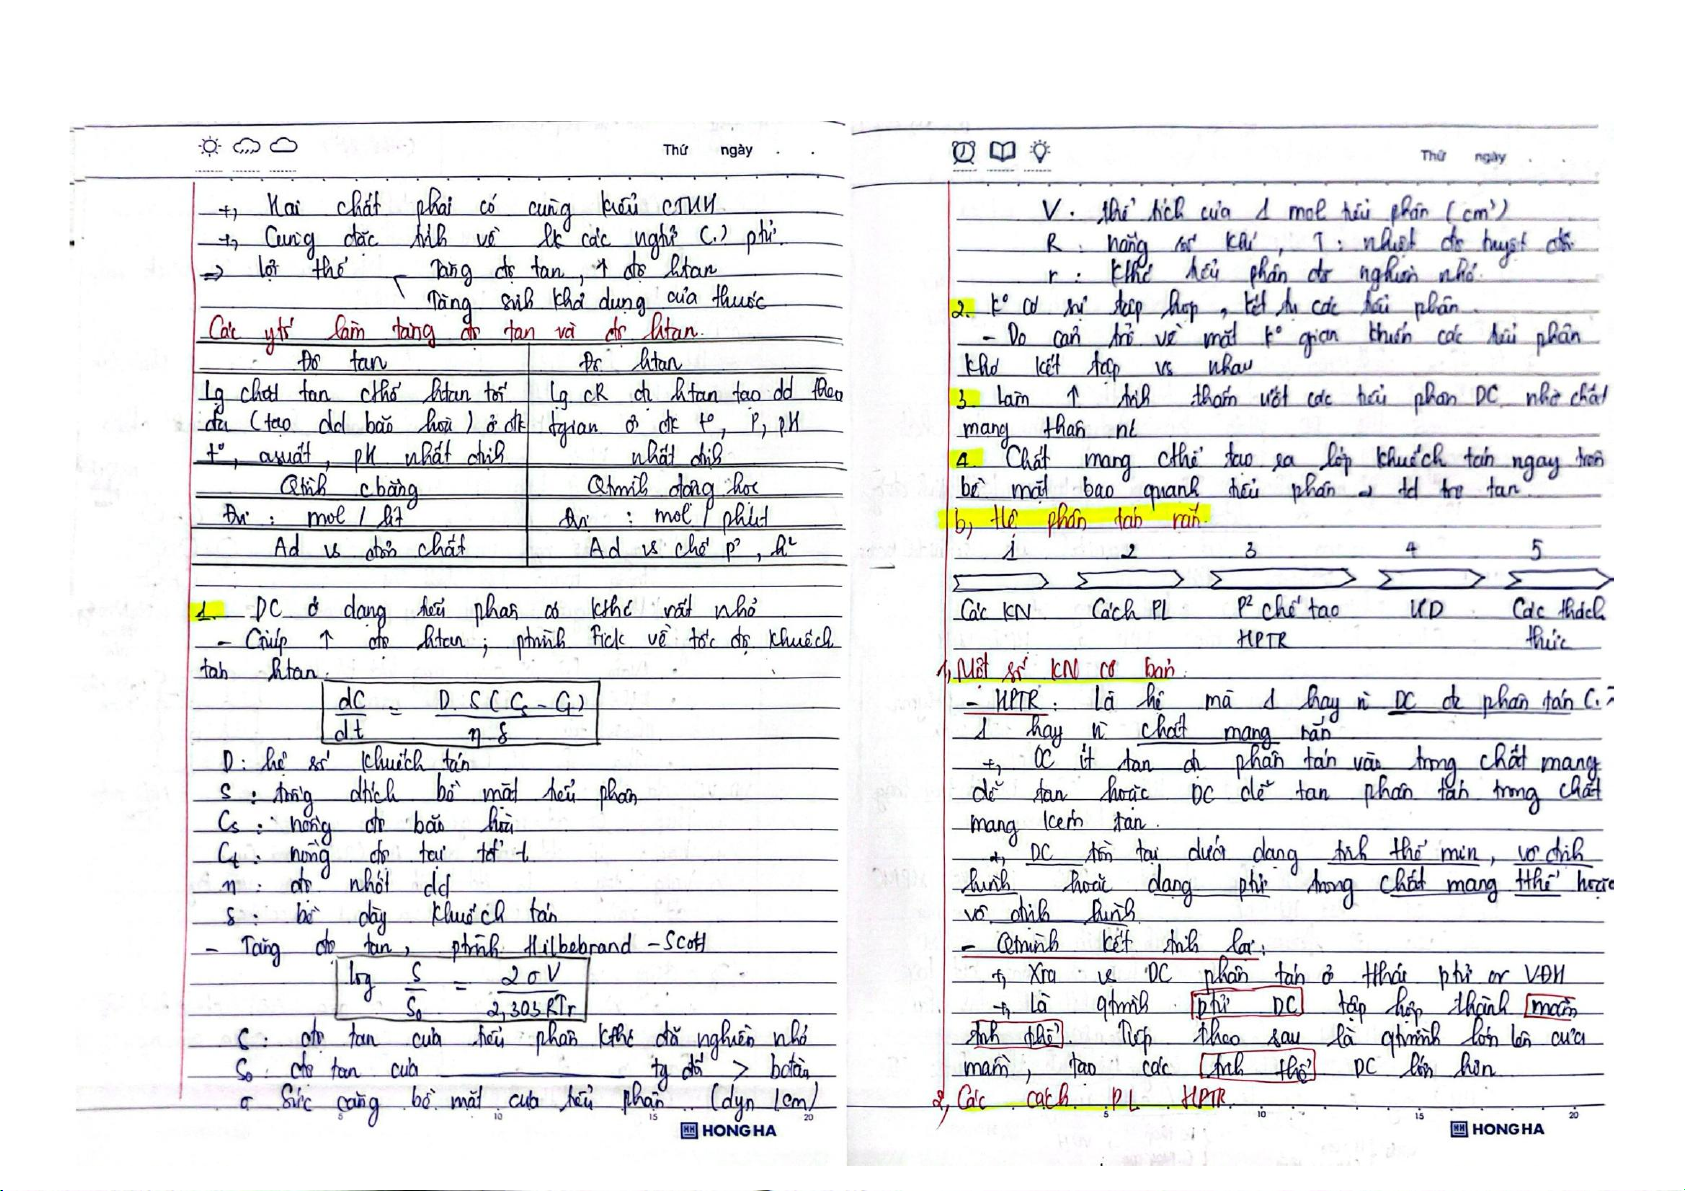 Thứ ngày . .
+, Hai chất phải có cùng kiểu CTHH
+, Cùng đặc tính về lk các nghtử (.) ptử.
=> lợi thế - Tăng độ tan, ↑ độ htan
Tăng sinh khả dụng của thuốc
Các ytố làm tăng độ tan và độ htan.
Độ tan Độ htan
Lg chất tan cthể htan tối Lg cR đc htan tạo dd theo
đa (tạo dd bão hoà) ở đk tgian ở đk t°, P, pH
t°, asuất, pH nhất định nhất định
Qtrình cbằng Qtrình động học
Đvị : mol / lít Đvị : mol / phút
Ad vs đơn chất Ad vs chế p², h²
1. DC ở dạng tiểu phân có kthc rất nhỏ
- Giúp ↑ độ htan ; ptrình Fick về tốc độ khuếch
tán htan.
dC/dt = D.S(Cs - Ct) / η δ
D: hệ số khuếch tán
S : tổng dtích bề mặt tiểu phân
Cs : nồng độ bão hoà
Ct : nồng độ tại tđ t
η : độ nhớt dd
δ : bề dày khuếch tán
- Tăng độ tan, ptrình Hilbebrand - Scott
log S/S₀ = 2σV / 2,303RTr
S : độ tan của tiểu phân kthc đã nghiền nhỏ
S₀ : độ tan của ________ tg đối > bđầu
σ Sức căng bề mặt của tiểu phân (dyn/cm)
5 10 15 20
HONG HA
Thứ ngày . .
V . thể tích của 1 mol tiểu phân (cm³)
R : hằng số khí, T : nhiệt độ tuyệt đối
r : Kthc tiểu phân đc nghiền nhỏ.
2. K° có sự tập hợp, kết tụ các tiểu phân.
- Do cản trở về mặt k° gian khiến các tiểu phân
khó kết tập vs nhau
3. Làm ↑ tính thấm ướt các tiểu phân DC nhờ chất
mang thân nc
4. Chất mang cthể tạo ra lớp khuếch tán ngay trên
bề mặt bao quanh tiểu phân → td trợ tan.
b, Hệ phân tán rắn.
1 2 3 4 5
Các KN Cách PL P² chế tạo ƯD Các thách
HPTR thức
1, Một số KN cơ bản.
- HPTR : Là hệ mà 1 hay n DC đc phân tán (.)
1 hay n chất mang rắn
+, DC ít tan đc phân tán vào trong chất mang
dễ tan hoặc DC dễ tan phân tán trong chất
mang kém tan.
+, DC tồn tại dưới dạng tinh thể mịn, vô định
hình hoặc dạng ptử trong chất mang tthể hoặc
vô định hình
- Qtrình kết tinh lại:
+, Xra vs DC phân tán ở thái ptử or VĐH
+, Là qtrình ptử DC tập hợp thành mầm
tinh thể. Tiếp theo sau là qtrình lớn lên của
mầm, tạo các tinh thể DC lớn hơn
2, Các cách PL HPTR
5 10 15 20
HONG HA